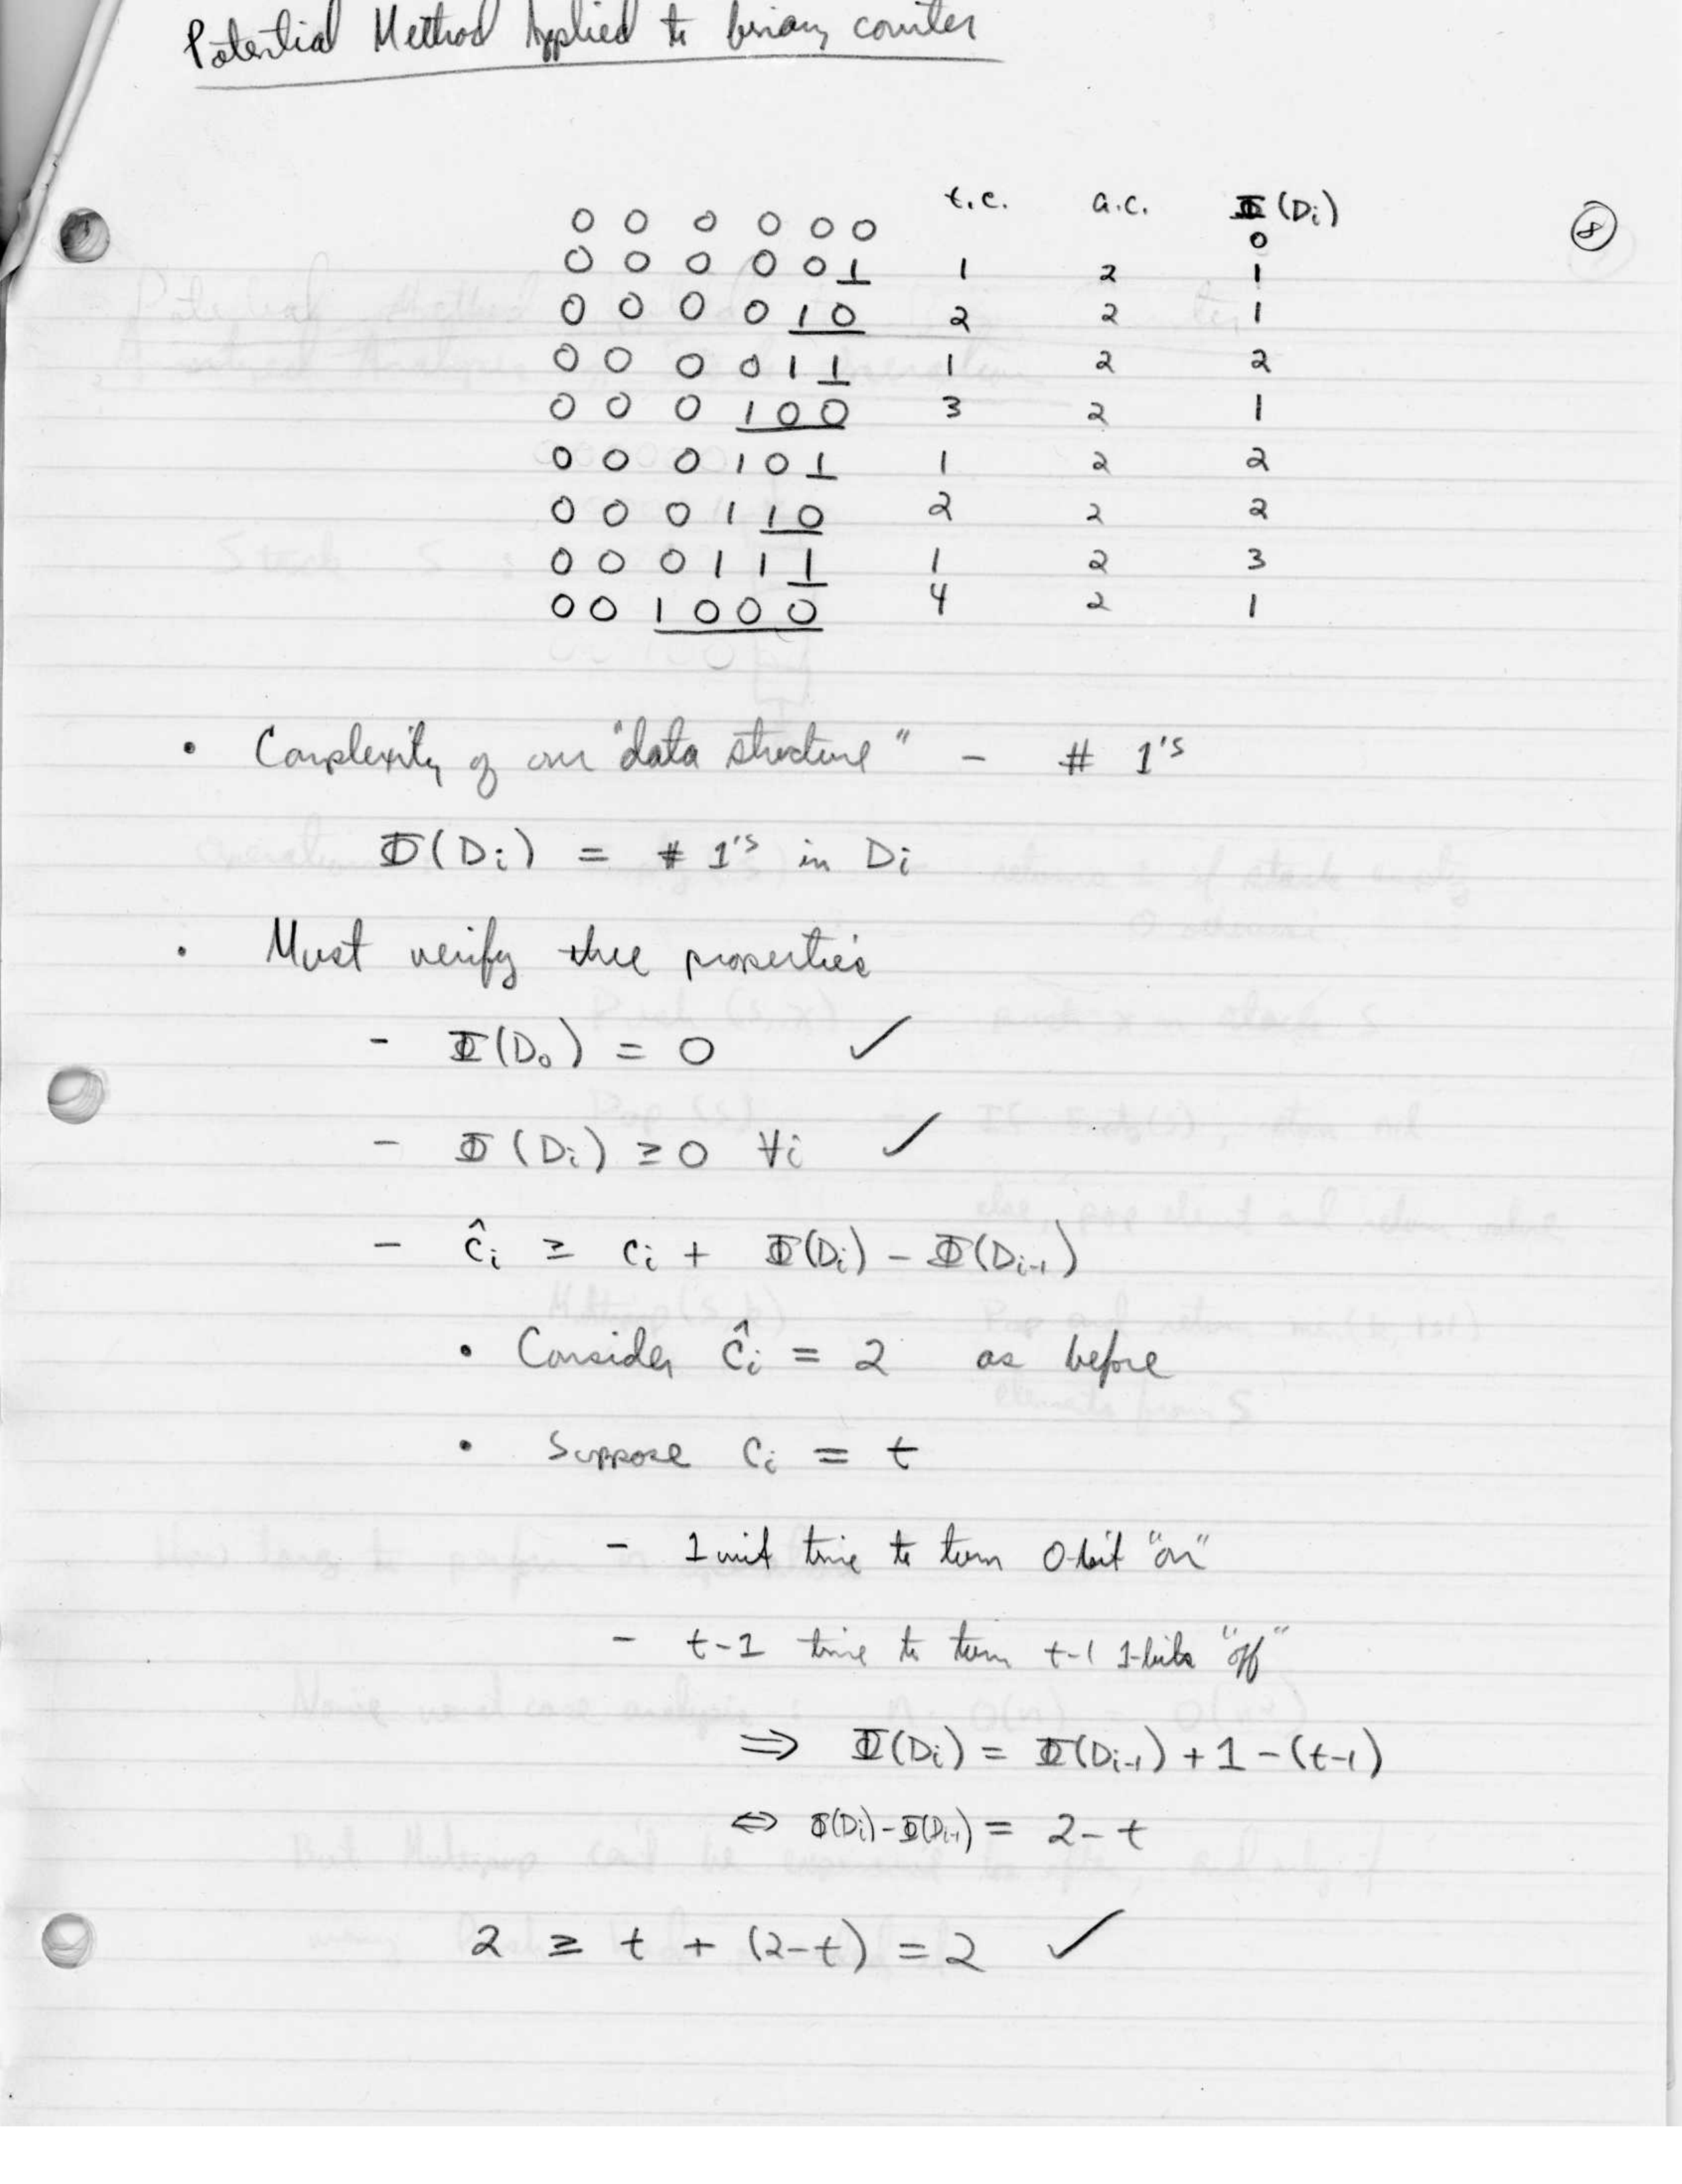 Potential Method Applied to binary counter
t.c. a.c. Φ(Di)
8
0 0 0 0 0 0 0
0 0 0 0 0 1 1 2 1
0 0 0 0 1 0 2 2 1
0 0 0 0 1 1 1 2 2
0 0 0 1 0 0 3 2 1
0 0 0 1 0 1 1 2 2
0 0 0 1 1 0 2 2 2
0 0 0 1 1 1 1 2 3
0 0 1 0 0 0 4 2 1
• Complexity of our "data structure" - # 1's
Φ(Di) = # 1's in Di
• Must verify three properties
- Φ(D0) = 0 ✓
- Φ(Di) ≥ 0 ∀i ✓
- ĉi ≥ ci + Φ(Di) - Φ(Di-1)
• Consider ĉi = 2 as before
• Suppose ci = t
- 1 unit time to turn 0-bit "on"
- t-1 time to turn t-1 1-bits "off"
⇒ Φ(Di) = Φ(Di-1) + 1 - (t-1)
⇔ Φ(Di) - Φ(Di-1) = 2 - t
2 ≥ t + (2-t) = 2 ✓